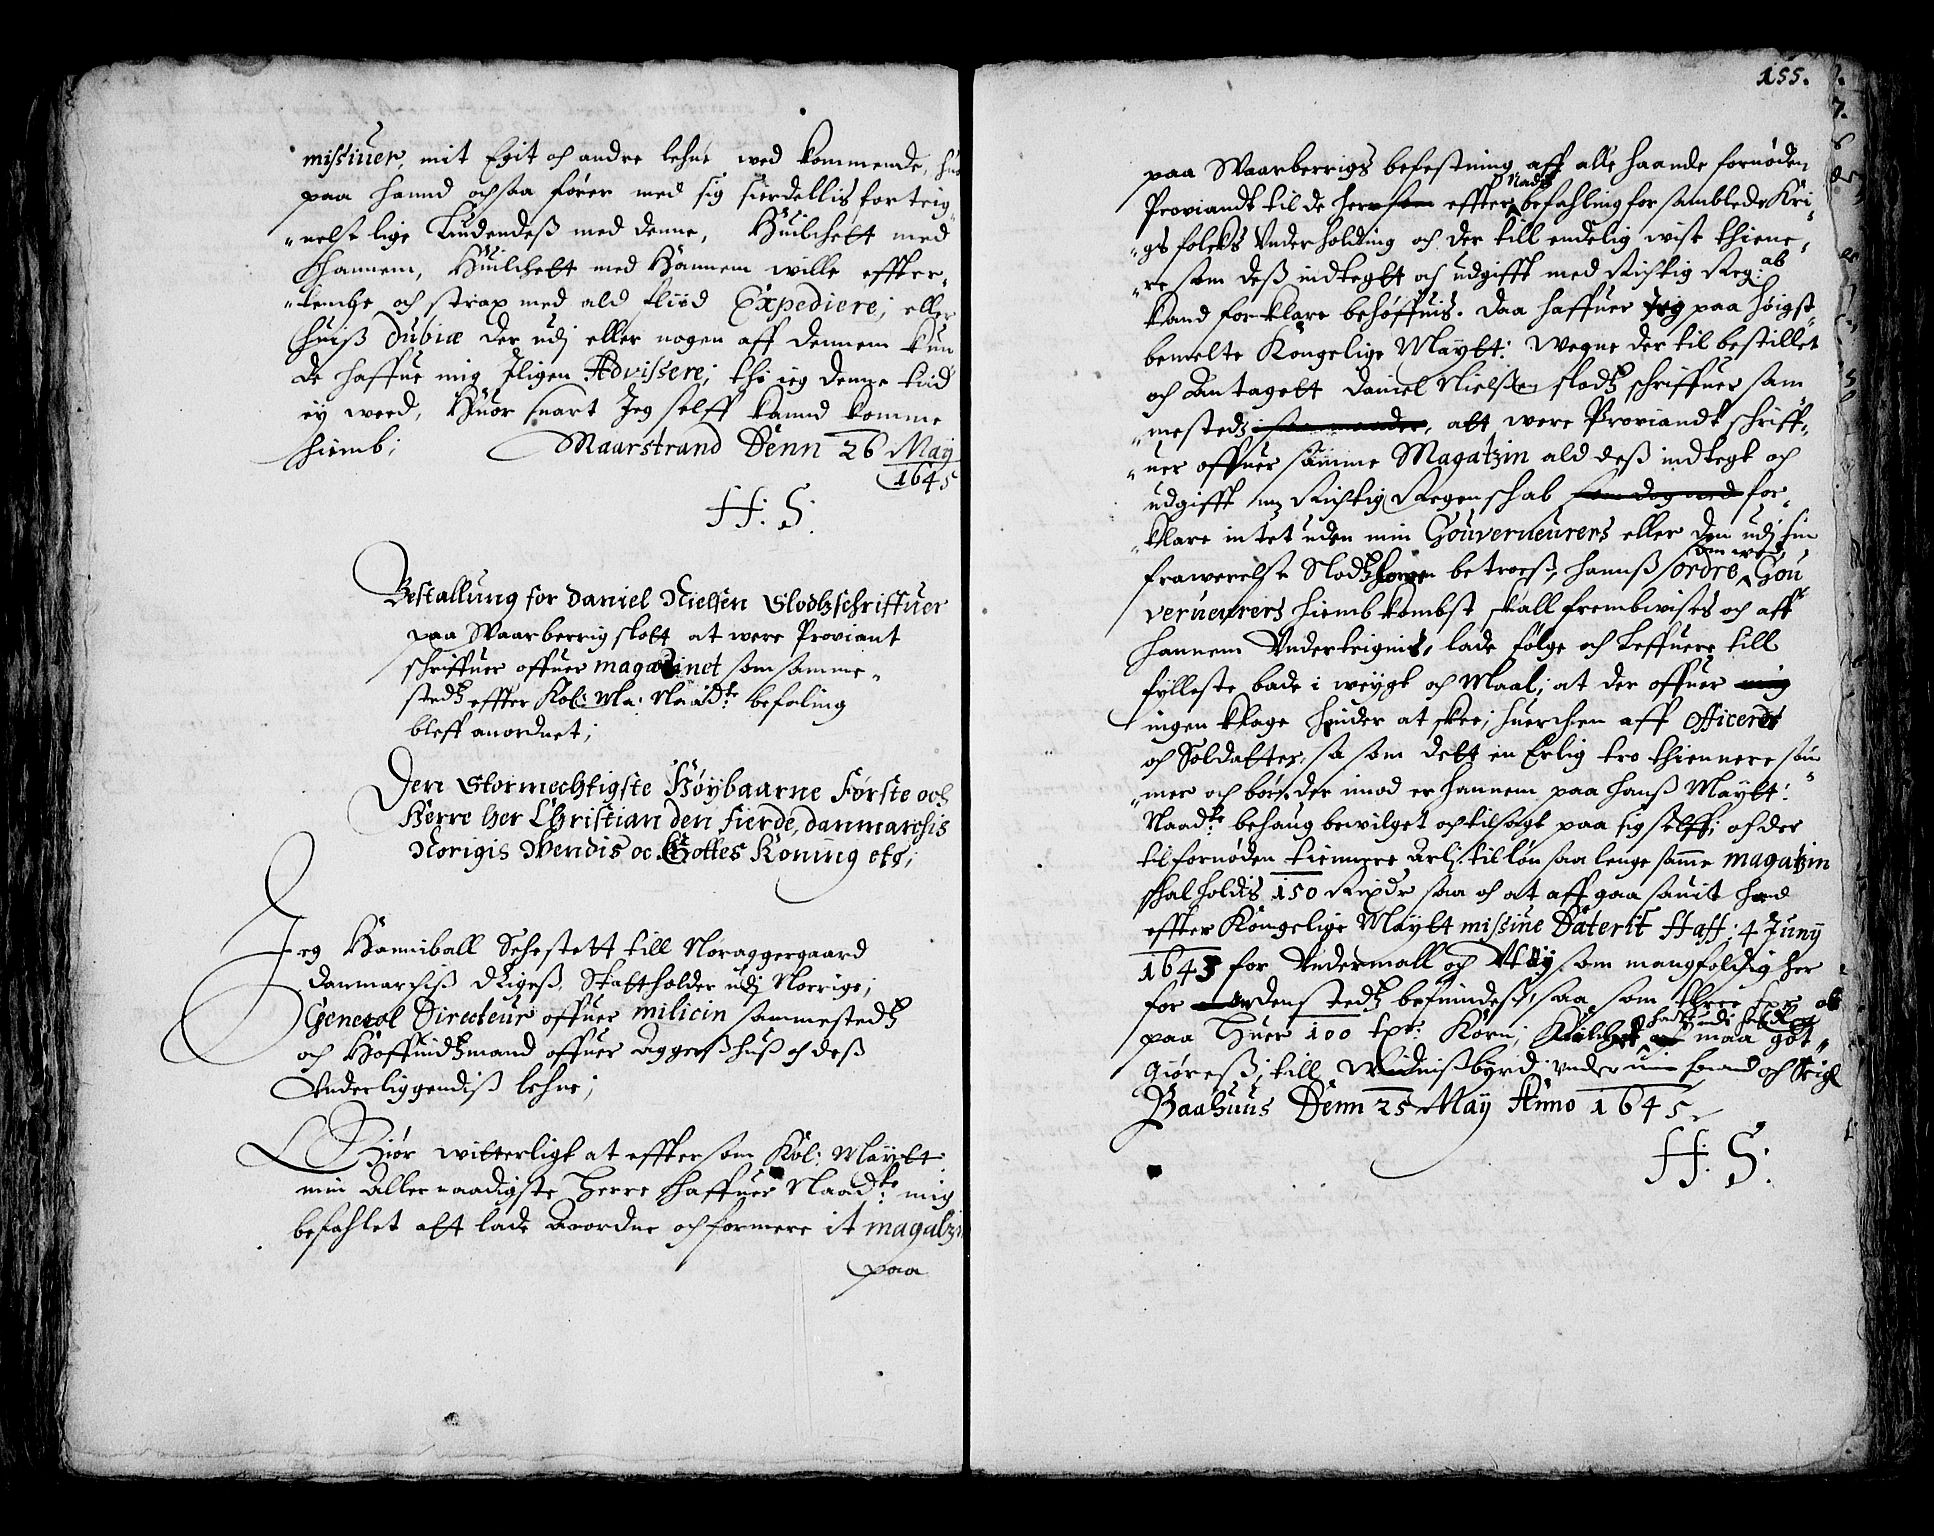 missiuer, mit Egit och andre lehne wed kommende,
paa hannd och saa fører med sig fierdellis forteig-
-nelse lige Liudendeß med denne, Huilchett med
hannem, Huilchett med Hannem wille effter-
-tenche och strax med ald fliid Expediere; eller
huiß dubia der udj eller nogen aff dennem kun
de haffue mig Iligen Advissere; thi ieg denne tiid
ey weed, Huor snart Jeg selff kannd komme
hiemb; Maarstrand Denn 26 May
1645
H: S:
Bestallung for Daniel Nielsen Slodtzschriffuer
paa Waarberrig slott at were Proviant
schriffuer offuer magazinet som samme-
stedtz effter Kol: Ma: Naadte befaling
bleff anordnet;
Den Stormechtigste Høybaarne Første och
Herre her Christian den fierde, danmarchis
Norigis Wendis oc Gottes Koning etc;
Jeg Hanniball Sehestett till Noraggergaard
danmarchiß Rigeß Stattholder udj Norrige;
General Directeur offuer milicin sammestedtz
och Høffuidtzmand offuer Aggerßhuß och deß
Underliggendiß lehne;
Giør witterligt at efftersom Kol: Maytt:
min Allernaadigste Herre haffuer Naadte mig
befahlet att lade Anordne och formere it magatzin
paa
155.
paa Waarberrigs befestning aff alle haande fornøden
Proviandt til de her som effter Nadte befahling forsamblede Kri-
-gs folcks Underholding och der till endelig wist thiene-
-re som deß indtegt och udgifft med Richtig Reg:ab
kand forklare behøffuis. Daa haffuer Jeg paa høigst-
bemelte Kongelige Maytt: Wegne der til bestillet
och Antagett Daniel Nielßen slodtz schriffuer sam
-mestedtz att were Proviandt schriff-
-uer offuer samme Magatzin ald deß indtegt och
udgifft Richtig Regenschab for-
-klare intet uden min Gouverneurers eller den udj hin
frawerelse Slodtz betroeß, hannß ordre som wed Gou
verneurers hiembkombst skall frembwises och aff
hannem Underteignis, lade følge och leffuere till
fylleste bade i weygt och Maal; at der offuer
ingen klage skeer; huerchen aff officerer
och Soldatter, sa som dett en Erlig tro thiennere søm
-mer och bør, der imod er hannem paa hanß Maytt:
Naadte behaug bewilget och tilsagt paa sig selff; och der
til fornøden tiennere Arlj: til løn saa lenge samme magatzin
skal holdis 150 Rixdr saa och at aff gaa
effter Kongelige Maytt missiue Daterit Haff: 4 Juny
1643 for Undermaall och som mangfoldig her
for stedtz befindeß, saa som
paa Huer 100 Korn; maa got-
giøreß, till Widnißbyrd under min haand och Seigl
Baahuus Denn 25 May Anno 1645
H: S: